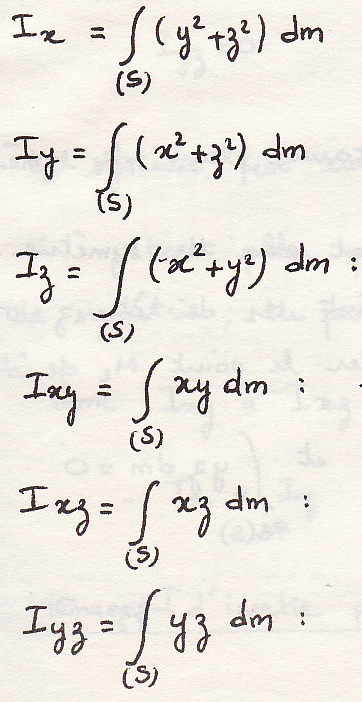 Ix = ∫(S) (y²+z²) dm
Iy = ∫(S) (x²+z²) dm
Iz = ∫(S) (x²+y²) dm :
Ixy = ∫(S) xy dm :
Ixz = ∫(S) xz dm :
Iyz = ∫(S) yz dm :